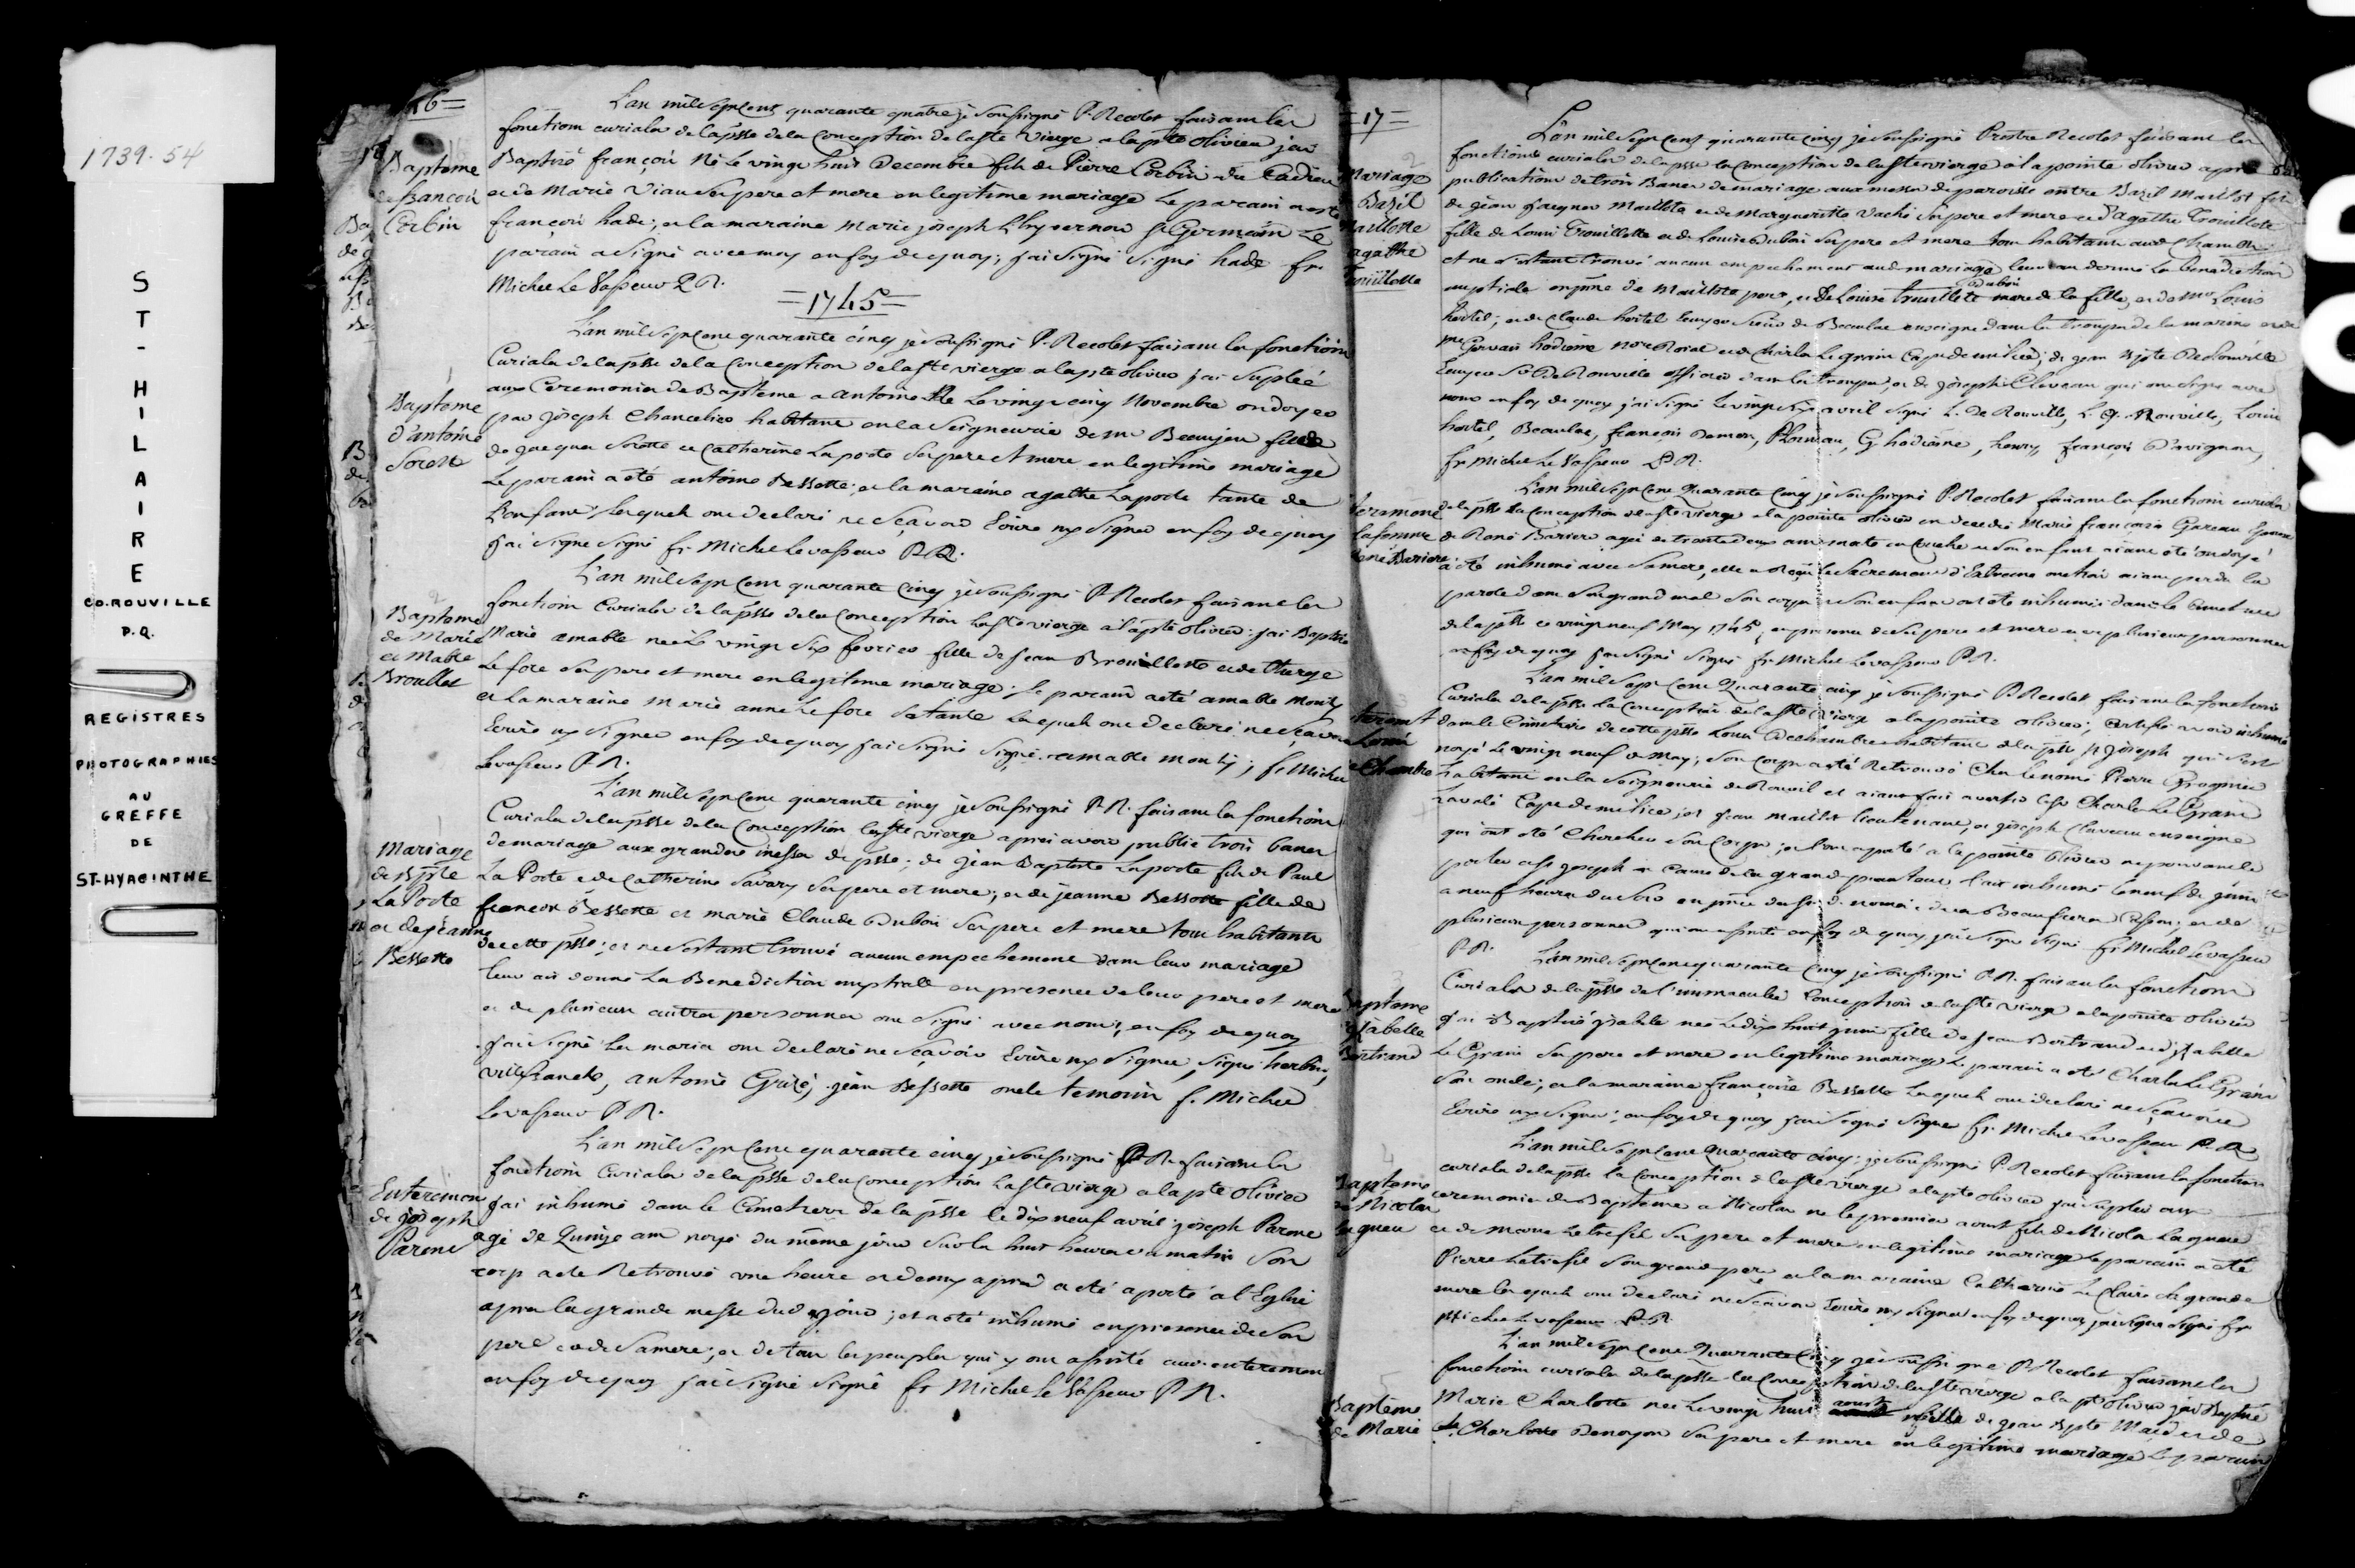 1739-54
ST-HILAIRE
CO.ROUVILLE
P.Q.
REGISTRES
PHOTOGRAPHIES
AU
GREFFE
DE
ST-HYACINTHE
16=
L'an mil sept cent quarante quatre je soussigné P. Recolet faisant les
fonctions curiales de la psse de la Conception de la ste vierge a la pte olivier jai
Baptisé françois Né Le vingt huit Decembre fils de Pierre Corbin
et de Marie Viau ses pere et mere en legitime mariage Le parain a eté
françois hade; et la maraine marie joseph Lhyvernou st Germain Le
parain a signé avec moy en foy de quoy; j'ai signé signé hade fr
Michel Le Vasseur P R.
Baptome
de francois
Corbin
=1745=
L'an mil sept cent quarante cinq je soussigné P. Recolet faisant les fonctions
Curiales de la psse de la Conception de la ste vierge a la pte olivier j'ai Suplée
aux Ceremonies de Bapteme a antoine Né Le vingt cinq Novembre ondoyé
par joseph Chancelier habitant en la Seigneurie de mr Beaujeu fils de
de jacques Sorette et Catherine Laporte ses pere et mere en legitime mariage
Le parain a eté antoine Bessette; et la maraine agathe Laporte tante de
L'enfant lesquels ont declaré ne sçavoir Ecrire ny signer en foy de quoy
j'ai signe signé fr Michel Levasseur P R.
Baptome
d'antoine
Sorette
L'an mil sept cent quarante Cinq je soussigné P. Recolet faisant les
fonctions Curiales de la psse de la Conception la ste vierge a la pte olivier: j'ai Baptisé
Marie amable née Le vingt six fevrier fille de jean Brouillette et de
Le fore ses pere et mere en legitime mariage; Le parain a eté amable Monty
et La maraine Marie anne Le fore sa tante Lesquels ont declaré ne sçavoir
Ecrire ny signer en foy de quoy j'ai signé signé amable monty; fr Michel
Levasseur P. R.
Baptome
de Marie
et Mable
Broullet
L'an mil sept cent quarante cinq je soussigné P. R. faisant les fonctions
Curiales de la psse de la Conception la ste vierge apres avoir publié trois bancs
de mariage aux grandes messes de psse; de jean Baptiste Laporte fils de Paul
La Porte et de Catherine Savary ses pere et mere; et de jeanne Bessette fille de
francois Bessette et marie Claude Dubois ses pere et mere tous habitants
de cette psse; et ne s'estant trouvé aucun empechement dans leur mariage
leur ai donné La Benediction nuptiale en presence de leurs pere et mere
et de plusieurs autres personnes ont signé avec nous, en foy de quoy
j'ai signé les maries ont declaré ne sçavoir Ecrire ny signer, signé
Villefranche, antoine Grisé, jean Bessette oncle temoin f. Michel
Levasseur P R.
Mariage
de Bpte
La Porte
et de jeanne
Bessette
L'an mil sept cent quarante cinq je soussigné P. R. faisant les
fonctions Curiales de la psse de la Conception La ste vierge a la pte olivier
j'ai inhumé dans le Cimetiere de la psse le dix neuf avril joseph Parent
agé de Quinze ans noyé du même jour sur la huit heures du matin son
corp a eté Retrouvé une heure et demy apres a eté aporté à l'Eglise
apres la grande messe du jour; et a eté inhumé en presence de son
pere et de sa mere; et de tous les peuples qui y ont assisté aux enterement
en foy de quoy j'ai signé signé fr Michel Le Vasseur P R.
Enterement
de joseph
Parent
=17=
L'an mil sept cent quarante cinq je soussigné Prestre Recolet faisant les
fonctions curiales de la psse la Conception de la ste vierge a la pointe olivier apres
publications de trois Bancs de mariage aux messes de paroisse entre Bazil Maillot fils
de jean jacques Maillote et de Marguerite Vaché ses pere et mere et d'agathe Trouillote
fille de Louis Trouillette et de Louise Dubois ses pere et mere tous habitants aud. Chambli
et ne s'estant trouvé aucun empechement aud. mariage leur ai donné La benediction
nuptiale en pnce de Maillote pere, et de Louise Trouillette Dubois mere de la fille, et de Mr Louis
hertel; et de Claude hertel Ecuyer Sieur de Beaulac enseigne dans les troupes de la marine et de
Mre Gervais hodiesne Nore Roial et de Charles Legrain Cape de milice; de jean Bpte De Rouville
Ecuyer Sr De Rouville officier dans les troupes, et de joseph Claveau qui ont signé avec
nous en foy de quoy j'ai signé avril signé L. De Rouville, L. G. Rouville, Louis
hertel, Beaulac, francois Demon, G hodiesne, henry, françois D'avignon,
fr Michel Le Vasseur P R.
Mariage
Bazil
Maillotte
agathe
Trouillette
L'an mil sept cent Quarante Cinq je soussigné P. Recolet faisant les fonctions curiales
de la psse La Conception de la ste vierge a la pointe olivier est decedée Marie francoise Gareau femme
de René Bariere agée de trente deux ans morte en Couche et son enfant aiant eté ondoyé
a eté inhumé avec sa mere, elle a Reçu le Sacrement d'Extreme onction aiant perdu la
parole dans son grand mal son corps et son enfant ont eté inhumés dans le Cimetiere
de la psse ce vingt neuf May 1745, en presence de ses pere et mere et plusieurs personnes
en foy de quoy j'ai signé signé fr Michel Levasseur P R.
La femme
René Bariere
L'an mil sept Cent Quarante cinq je soussigné P. Recolet faisant les fonctions
Curiales de la psse La Conception de la ste vierge a la pointe olivier; certifie avoir inhumé
dans le Cimetiere de cette psse Louis Dechambre habitant de la psse st joseph qui s'est
noyé Le vingt neuf de May; son Corp a eté Retrouvé Chez le nomé Pierre
habitant en la Seigneurie de Rouvil et aiant fait avertir Charle Le Grain
Cape de milice; et jean maillot lieutenant, et joseph Claveau enseigne
qui ont eté Chercher son Corp; et l'ont aporté a la pointe olivier ne pouvant le
porter a st joseph a Cause de la grand puanteur l'ai inhumé le neuf de juin
a neuf heures du soir en pnce du Sr de beaufrere et de
plusieurs personnes qui ont assisté en foy de quoy j'ai signé signé fr Michel Levasseur
P. R.
Louis
de Chambre
L'an mil sept cent quarante Cinq je soussigné P. R. faisant les fonctions
Curiales de la psse de l'immaculée Conception de la ste vierge a la pointe olivier
j'ai Baptisé jsabelle née Le dix huit juin fille de jean Bertrand et d'jsabelle
Le Grain ses pere et mere en legitime mariage Le parain a eté Charle Le Grain
son oncle; et la maraine françoise Bessette Lesquels ont declaré ne sçavoir
Ecrire ny signer; en foy de quoy j'ai signé signé fr Michel Levasseur P. R.
Baptome
jsabelle
Bertrand
L'an mil sept cent Quarante cinq; je soussigné P. Recolet faisant les fonctions
curiales de la psse la Conception de la ste vierge a la pte olivier j'ai suplée aux
ceremonies de Bapteme a Nicolas né le premier aoust fils de Nicolas Laqueue
et de Marie Letrefil ses pere et mere en legitime mariage Le parain a eté
Pierre Letrefil son grand pere et la maraine Catherine Le Claire La grande
mere lesquels ont declaré ne sçavoir Ecrire ny signer en foy de quoy j'ai signé signé fr
Michel Levasseur P. R.
Baptome
de Nicolas
Laqueue
L'an mil sept cent Quarante Cinq je soussigné P. Recolet faisant les
fonctions curiales de la psse la Conception de la ste vierge a la pte olivier j'ai Baptisé
Marie Charlotte née Le vingt huit aoust fille de jean Bpte et de
Charlotte Denoyon ses pere et mere en legitime mariage Le parain
Baptême
de Marie